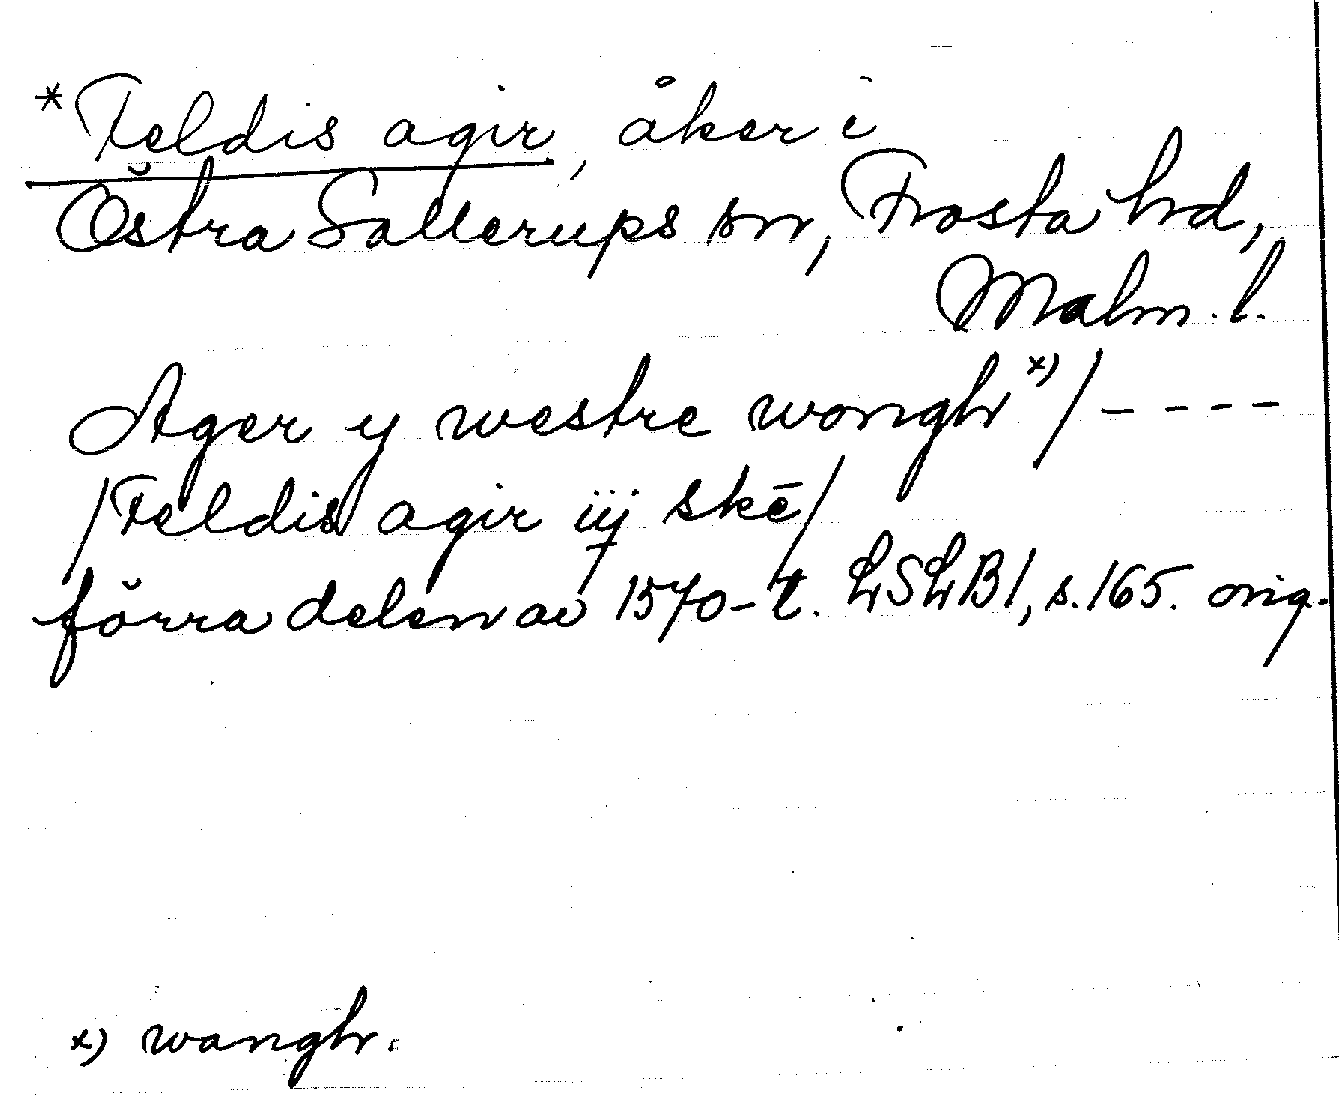 *Feldis agir, åker i
Östra Sallerups sn, Frosta hrd,
Malm. l.
Ager y westre wongh x) / - - - -
/ Feldis agir iij skē /
förra delen av 1570-t. LSLB1, s. 165. orig.
x) wangh.